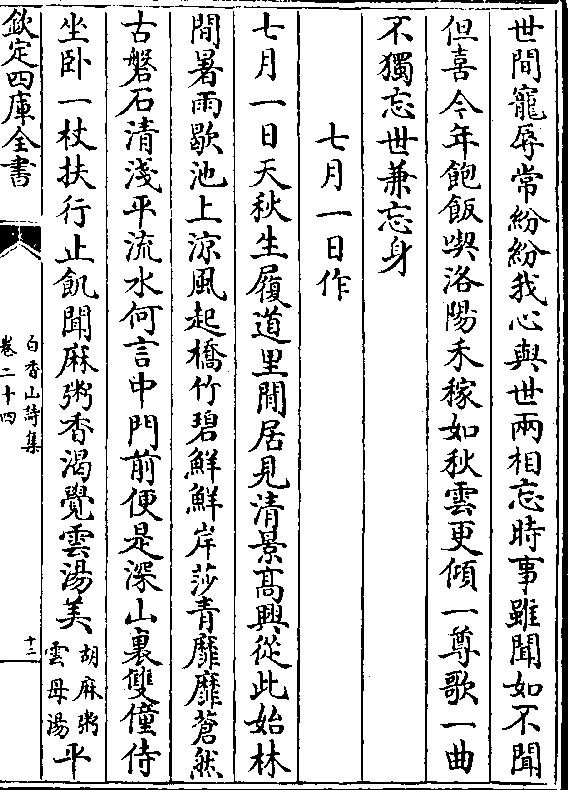 世間寵辱常紛紛我心與世兩相忘時事雖聞如不聞
但喜今年飽飯喫洛陽禾稼如秋雲更傾一尊歌一曲
不獨忘世兼忘身
七月一日作
七月一日天秋生履道里閒居見清景髙興從此始林
間暑雨歇池上涼風起橋竹碧鮮鮮岸莎青靡靡蒼然
古磐石清淺平流水何言中門前便是深山裏雙僮侍
坐卧一杖扶行止飢聞麻粥香渴覺雲湯美胡麻粥雲母湯平
欽定四庫全書
白香山詩集
卷二十四
十二